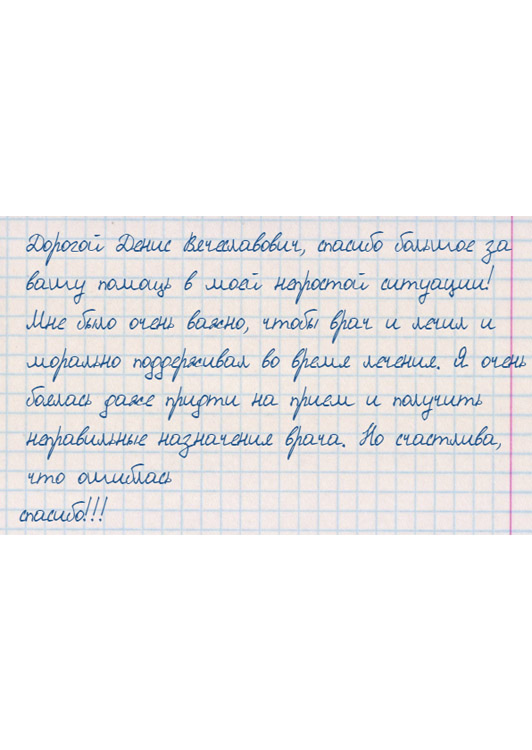 Дорогой Денис Вечеславович, спасибо большое за
вашу помощь в моей непростой ситуации!
Мне было очень важно, чтобы врач и лечил и
морально поддерживал во время лечение. Я очень
боелась даже придти на прием и получить
неправильные назначения врача. Но счастлива,
что ошиблась
спасибо!!!